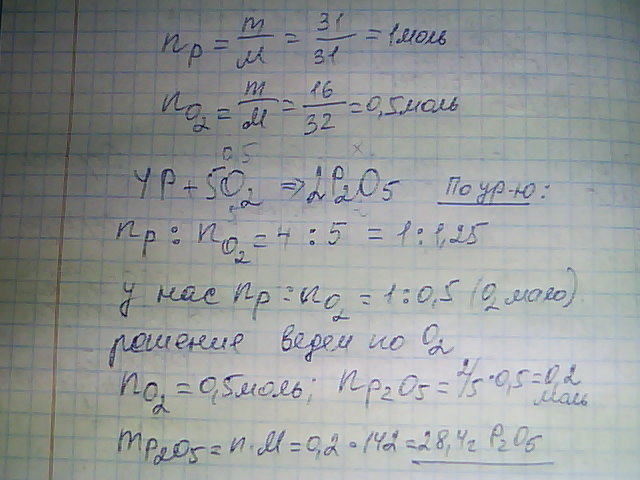 n_P = m/M = 31/31 = 1 моль
n_O₂ = m/M = 16/32 = 0,5 моль
0,5 x
4P + 5O₂ ⇒ 2P₂O₅ По ур-ю:
n_P : n_O₂ = 4 : 5 = 1 : 1,25
у нас n_P : n_O₂ = 1 : 0,5 (O₂ мало)
решение ведем по O₂
n_O₂ = 0,5 моль; n_P₂O₅ = 2/5 · 0,5 = 0,2 моль
m_P₂O₅ = n · M = 0,2 · 142 = 28,4 г P₂O₅